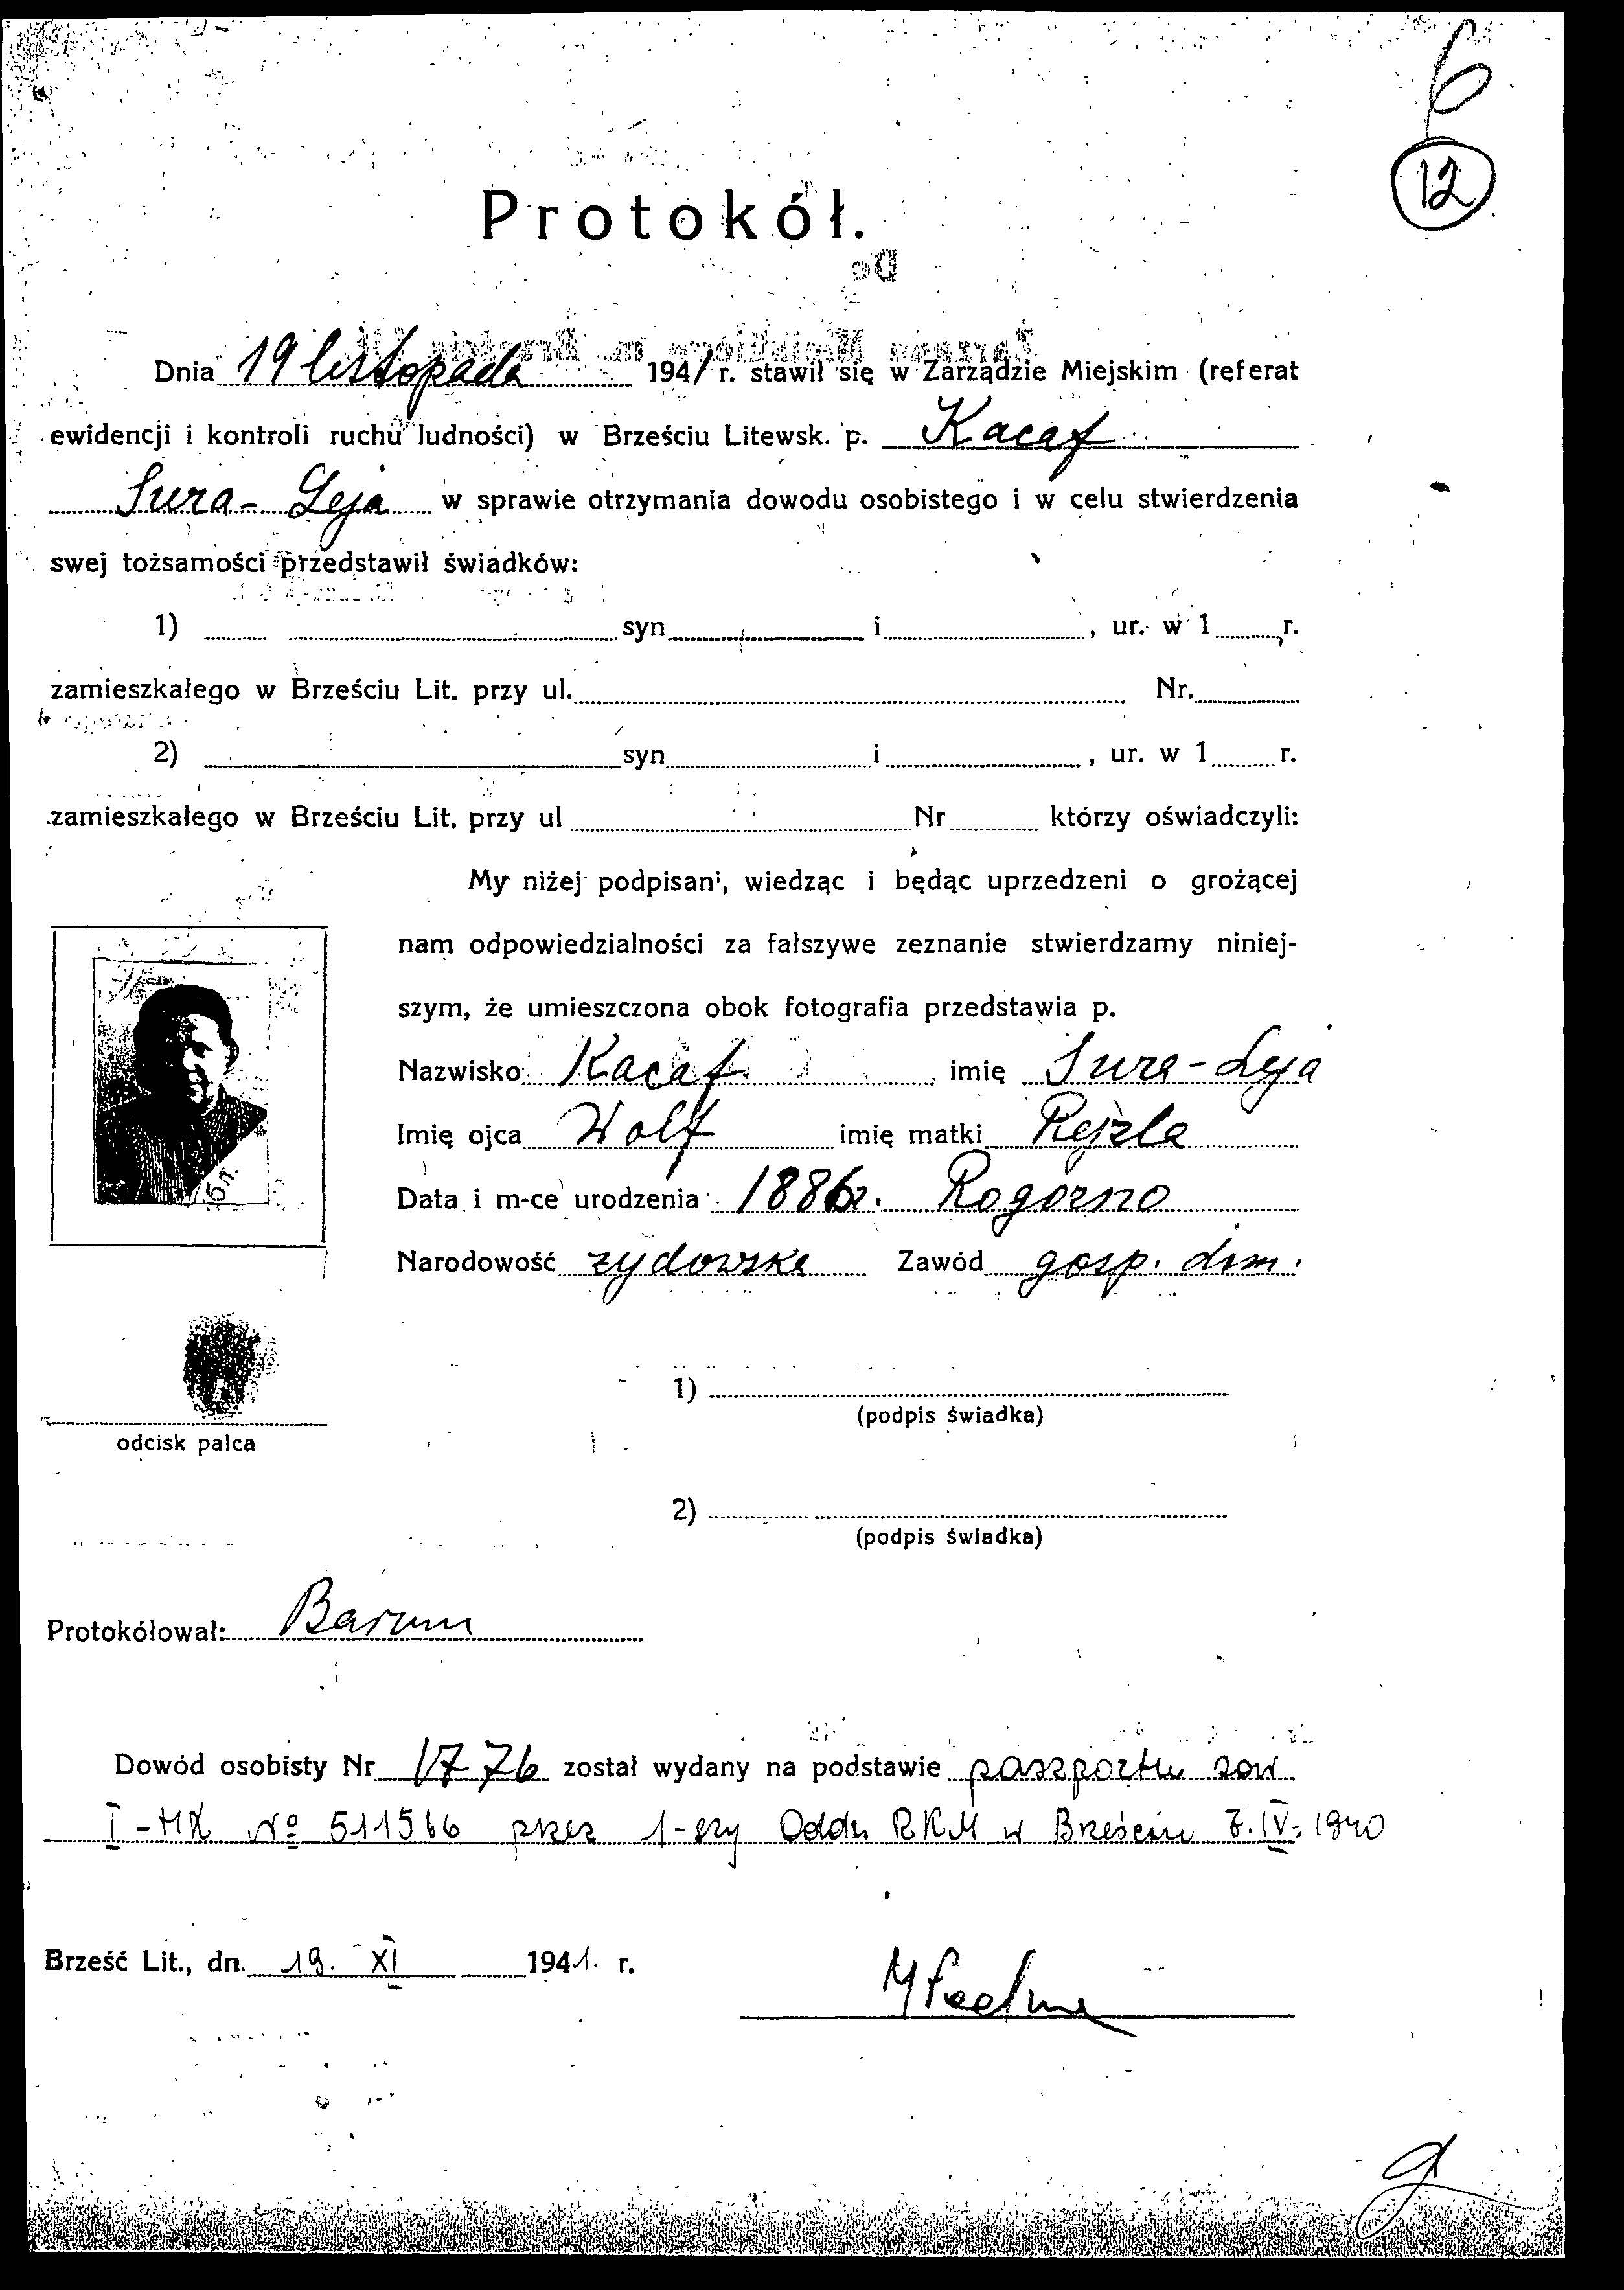 6
12
Protokół.
Dnia 19 listopada 1941 r. stawił się w Zarządzie Miejskim (referat
ewidencji i kontroli ruchu ludności) w Brześciu Litewsk. p. Kacaf
Sura-Leja w sprawie otrzymania dowodu osobistego i w celu stwierdzenia
swej tożsamości przedstawił świadków:
1) syn i , ur. w 1 r.
zamieszkałego w Brześciu Lit. przy ul. Nr.
2) syn i , ur. w 1 r.
zamieszkałego w Brześciu Lit. przy ul Nr którzy oświadczyli:
My niżej podpisani, wiedząc i będąc uprzedzeni o grożącej
nam odpowiedzialności za fałszywe zeznanie stwierdzamy niniej-
szym, że umieszczona obok fotografia przedstawia p.
Nazwisko Kacaf imię Sura-Leja
Imię ojca Wolf imię matki Rejzla
Data i m-ce urodzenia 1886 r. Rogozno
Narodowość żydowska Zawód gosp. dom.
odcisk palca
1)
(podpis świadka)
2)
(podpis świadka)
Protokółował: Barum
Dowód osobisty Nr 1776 został wydany na podstawie paszportu sow
I-MK № 511566 przez 1-szy Oddz RKM w Brześciu 7.IV.1940
Brześć Lit., dn. 19. XI 1941. r.